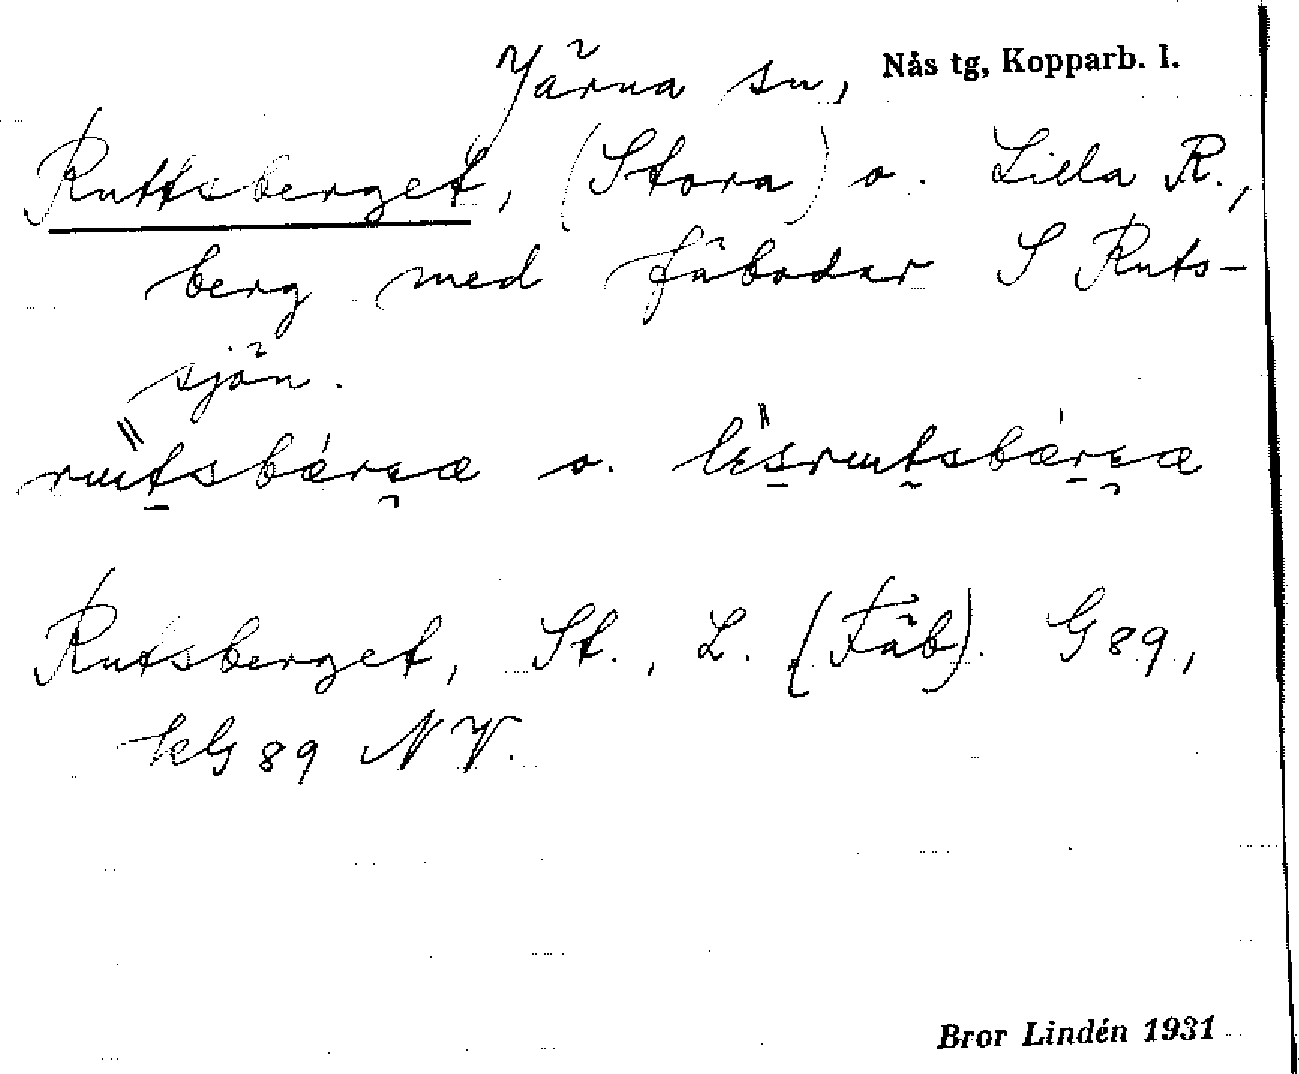 Järna sn, Nås tg, Kopparb. l.
Ruttsberget, (Stora) o. Lilla R.,
berg med fäbodar S Ruts-
sjön.
o.
Rutsberget, St., L. (Fäb). G 89,
kG 89 NV.
Bror Lindén 1931